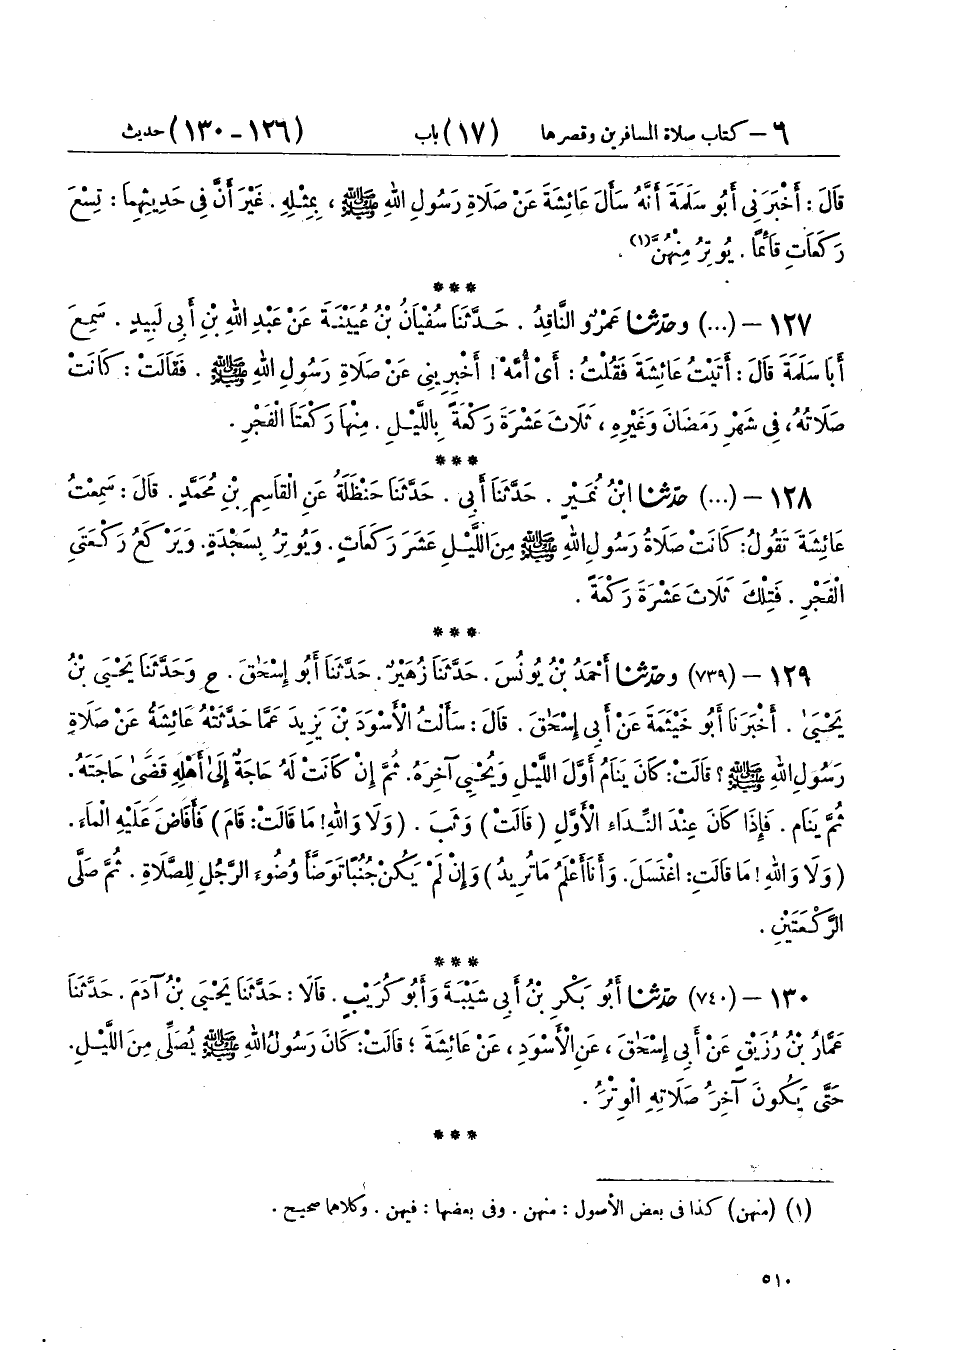 ٦ – كتاب صلاة المسافرين وقصرها (١٧) باب (١٢٦ – ١٣٠) حديث
قَالَ : أَخْبَرَنِي أَبُو سَلَمَةَ أَنَّهُ سَأَلَ عَائِشَةَ عَنْ صَلَاةِ رَسُولِ اللهِ ﷺ ، بِمِثْلِهِ . غَيْرَ أَنَّ فِي حَدِيثِهِمَا : تِسْعَ
رَكَعَاتٍ قَائِمًا . يُوتِرُ مِنْهُنَّ(١) .
***
١٢٧ – (...) وحَدَّثَنَا عَمْرٌو النَّاقِدُ . حَدَّثَنَا سُفْيَانُ بْنُ عُيَيْنَةَ عَنْ عَبْدِ اللهِ بْنِ أَبِي لَبِيدٍ . سَمِعَ
أَبَا سَلَمَةَ قَالَ : أَتَيْتُ عَائِشَةَ فَقُلْتُ : أَىْ أُمَّهْ ! أَخْبِرِينِي عَنْ صَلَاةِ رَسُولِ اللهِ ﷺ . فَقَالَتْ : كَانَتْ
صَلَاتُهُ ، فِي شَهْرِ رَمَضَانَ وَغَيْرِهِ ، ثَلَاثَ عَشْرَةَ رَكْعَةً بِاللَّيْلِ . مِنْهَا رَكْعَتَا الْفَجْرِ .
***
١٢٨ – (...) حَدَّثَنَا ابْنُ نُمَيْرٍ . حَدَّثَنَا أَبِي . حَدَّثَنَا حَنْظَلَةُ عَنِ الْقَاسِمِ بْنِ مُحَمَّدٍ . قَالَ : سَمِعْتُ
عَائِشَةَ تَقُولُ : كَانَتْ صَلَاةُ رَسُولِ اللهِ ﷺ مِنَ اللَّيْلِ عَشَرَ رَكَعَاتٍ . وَيُوتِرُ بِسَجْدَةٍ . وَيَرْكَعُ رَكْعَتَىِ
الْفَجْرِ . فَتِلْكَ ثَلَاثَ عَشْرَةَ رَكْعَةً .
***
١٢٩ – (٧٣٩) وحَدَّثَنَا أَحْمَدُ بْنُ يُونُسَ . حَدَّثَنَا زُهَيْرٌ . حَدَّثَنَا أَبُو إِسْحَاقَ . ح وَحَدَّثَنَا يَحْيَىَ بْنُ
يَحْيَىٰ . أَخْبَرَنَا أَبُو خَيْثَمَةَ عَنْ أَبِي إِسْحَاقَ . قَالَ : سَأَلْتُ الْأَسْوَدَ بْنَ يَزِيدَ عَمَّا حَدَّثَتْهُ عَائِشَةُ عَنْ صَلَاةِ
رَسُولِ اللهِ ﷺ ؟ قَالَتْ : كَانَ يَنَامُ أَوَّلَ اللَّيْلِ وَيُحْيِي آخِرَهُ . ثُمَّ إِنْ كَانَتْ لَهُ حَاجَةٌ إِلَىٰ أَهْلِهِ قَضَىٰ حَاجَتَهُ .
ثُمَّ يَنَام . فَإِذَا كَانَ عِنْدَ النِّدَاءِ الْأَوَّلِ ( قَالَتْ ) وَثَبَ . ( وَلَا وَاللهِ ! مَا قَالَتْ : قَامَ ) فَأَفَاضَ عَلَيْهِ الْمَاءَ .
( وَلَا وَاللهِ ! مَا قَالَتِ : اغْتَسَلَ . وَأَنَا أَعْلَمُ مَا تُرِيدُ ) وَإِنْ لَمْ يَكُنْ جُنُبًا تَوَضَّأَ وُضُوءَ الرَّجُلِ لِلصَّلَاةِ . ثُمَّ صَلَّى
الرَّكْعَتَيْنِ .
***
١٣٠ – (٧٤٠) حَدَّثَنَا أَبُو بَكْرِ بْنُ أَبِي شَيْبَةَ وَأَبُو كُرَيْبٍ . قَالَا : حَدَّثَنَا يَحْيَىَ بْنُ آدَمَ . حَدَّثَنَا
عَمَّارُ بْنُ رُزَيْقٍ عَنْ أَبِي إِسْحَاقَ ، عَنِ الْأَسْوَدِ ، عَنْ عَائِشَةَ ؛ قَالَتْ : كَانَ رَسُولُ اللهِ ﷺ يُصَلِّي مِنَ اللَّيْلِ .
حَتَّى يَكُونَ آخِرَ صَلَاتِهِ الْوِتْرُ .
***
(١) (منهن) كذا فى بعض الأصول : منهن . وفى بعضها : فيهن . وكلاهما صحيح .
٥١٠